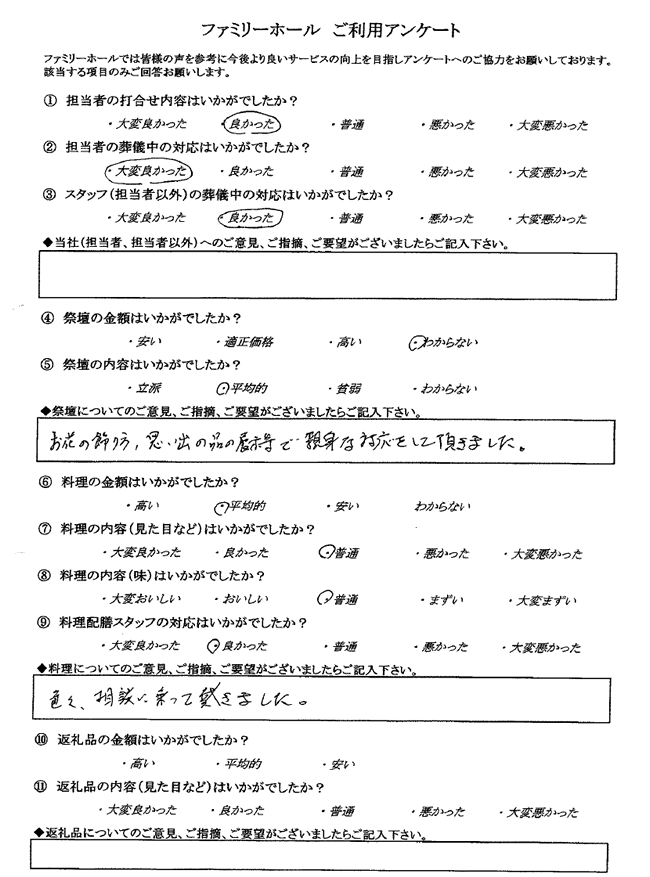 ファミリーホール ご利用アンケート
ファミリーホールでは皆様の声を参考に今後より良いサービスの向上を目指しアンケートへのご協力をお願いしております。
該当する項目のみご回答お願いします。
① 担当者の打合せ内容はいかがでしたか？
・大変良かった ・良かった ・普通 ・悪かった ・大変悪かった
② 担当者の葬儀中の対応はいかがでしたか？
・大変良かった ・良かった ・普通 ・悪かった ・大変悪かった
③ スタッフ(担当者以外)の葬儀中の対応はいかがでしたか？
・大変良かった ・良かった ・普通 ・悪かった ・大変悪かった
◆当社(担当者、担当者以外)へのご意見、ご指摘、ご要望がございましたらご記入下さい。
④ 祭壇の金額はいかがでしたか？
・安い ・適正価格 ・高い ・わからない
⑤ 祭壇の内容はいかがでしたか？
・立派 ・平均的 ・貧弱 ・わからない
◆祭壇についてのご意見、ご指摘、ご要望がございましたらご記入下さい。
お花の飾り方，思い出の品の展示等で親身な対応をして頂きました。
⑥ 料理の金額はいかがでしたか？
・高い ・平均的 ・安い わからない
⑦ 料理の内容(見た目など)はいかがでしたか？
・大変良かった ・良かった ・普通 ・悪かった ・大変悪かった
⑧ 料理の内容(味)はいかがでしたか？
・大変おいしい ・おいしい ・普通 ・まずい ・大変まずい
⑨ 料理配膳スタッフの対応はいかがでしたか？
・大変良かった ・良かった ・普通 ・悪かった ・大変悪かった
◆料理についてのご意見、ご指摘、ご要望がございましたらご記入下さい。
色々、相談に乗って戴きました。
⑩ 返礼品の金額はいかがでしたか？
・高い ・平均的 ・安い
⑪ 返礼品の内容(見た目など)はいかがでしたか？
・大変良かった ・良かった ・普通 ・悪かった ・大変悪かった
◆返礼品についてのご意見、ご指摘、ご要望がございましたらご記入下さい。